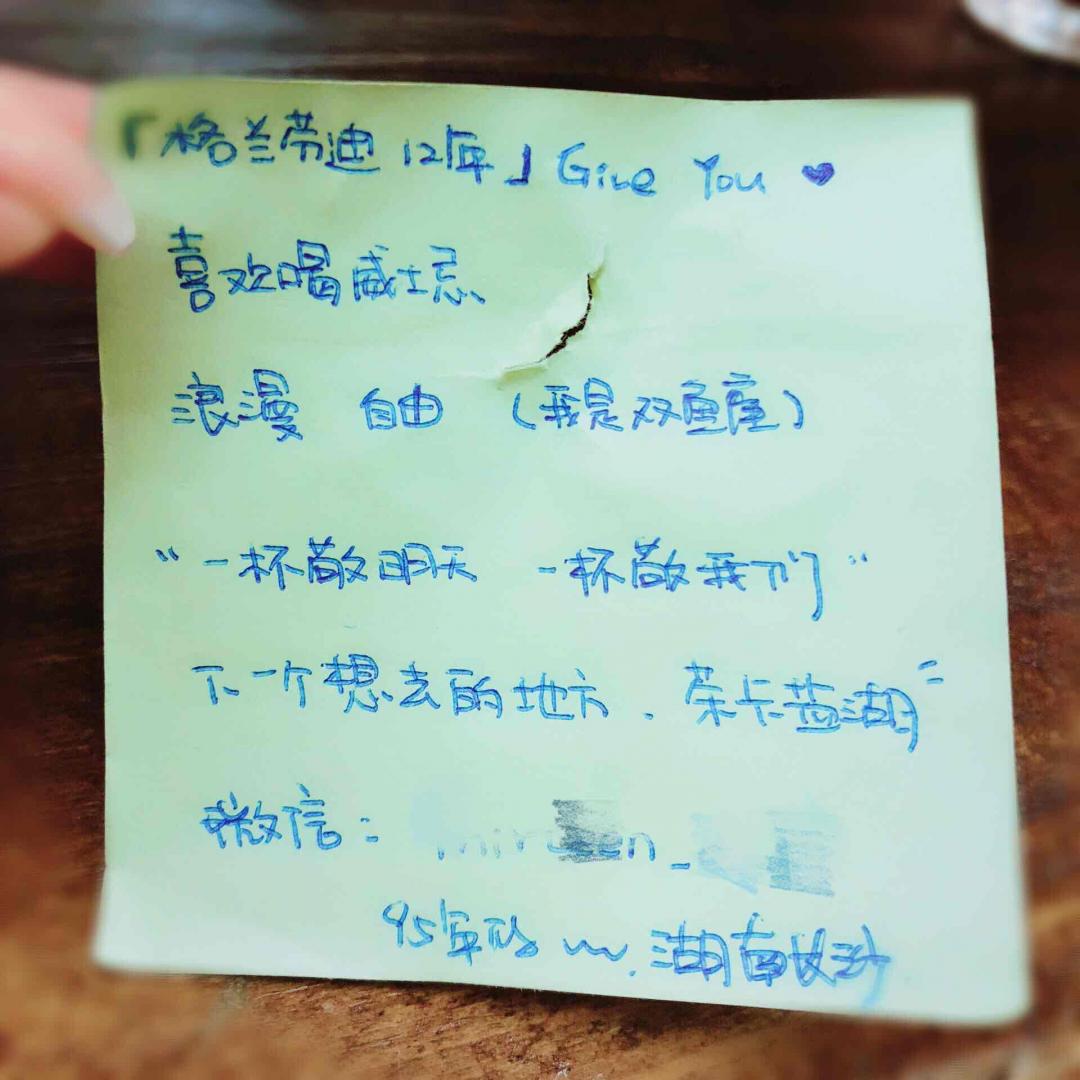 「格兰蒂迪12年」Give You ♥
喜欢喝威士忌、
浪漫 自由 (我是双鱼座)
“一杯敬明天 一杯敬我们”
下一个想去的地方. 茶卡盐湖"
微信:
95年的 ~. 湖南长沙